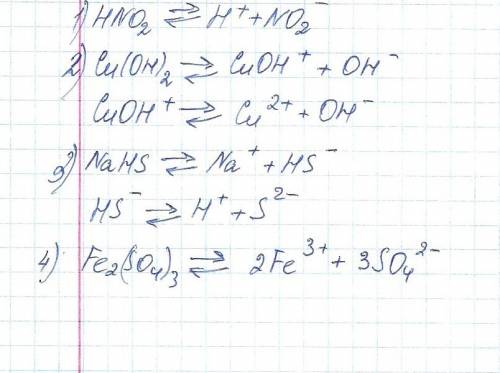 1) HNO₂ ⇄ H⁺ + NO₂⁻
2) Cu(OH)₂ ⇄ CuOH⁺ + OH⁻
CuOH⁺ ⇄ Cu²⁺ + OH⁻
3) NaHS ⇄ Na⁺ + HS⁻
HS⁻ ⇄ H⁺ + S²⁻
4) Fe₂(SO₄)₃ ⇄ 2Fe³⁺ + 3SO₄²⁻